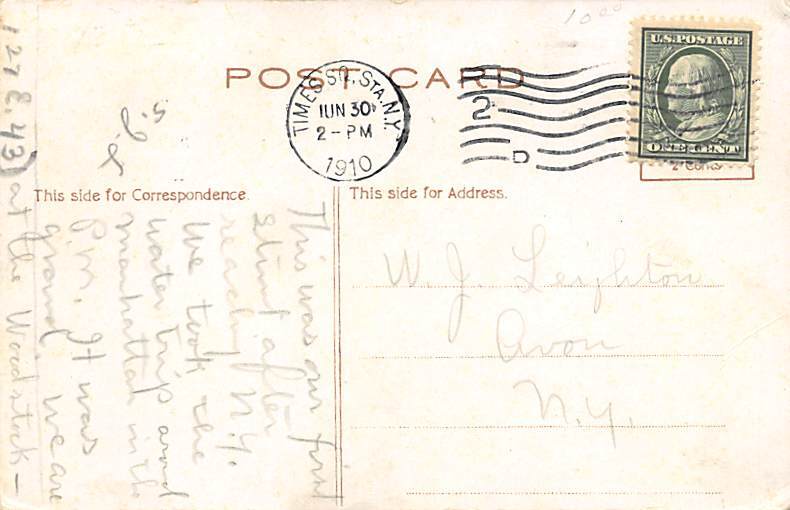 10 00
U.S. POSTAGE
ONE CENT
POST CARD
TIMES SQ. STA. N.Y.
JUN 30
2-PM
1910
2
D
2 Cents
This side for Correspondence.
This side for Address.
W. J. Leighton
Avon
N.Y.
This was our first
stunt after
reaching N.Y.
We took the
water trip around
manhattan in the
P.M. It was
grand. We are
at the Woodstock -
127 &. 43)